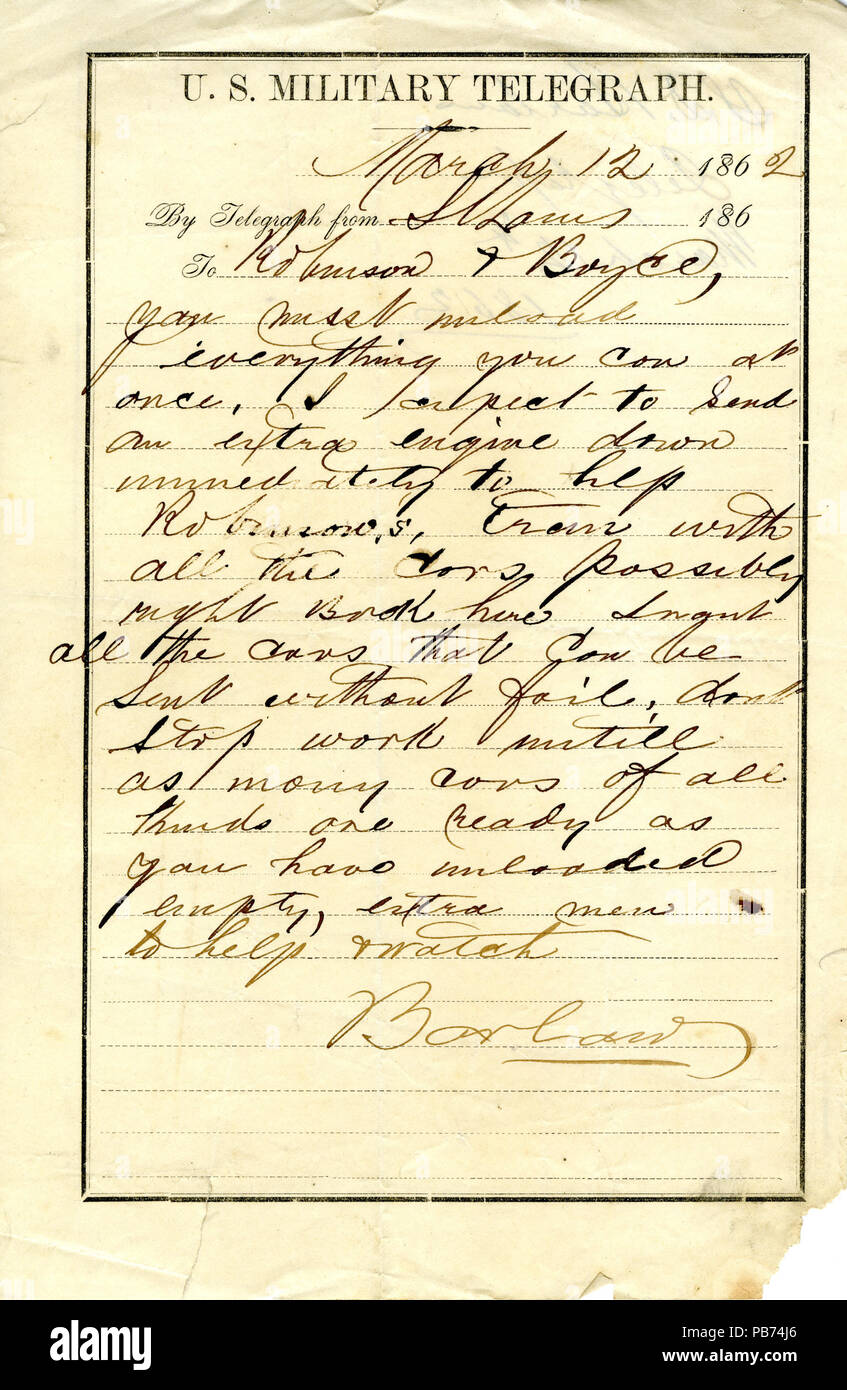 U. S. MILITARY TELEGRAPH.
March 12 1862
By Telegraph from St Louis 186
To Robinson & Boyce,
you must unload
everything you can at
once, I expect to send
an extra engine down
immediately to help
Robinson,s, train with
all the cars possibly
right back here,
all the cars that can be
sent without fail, dont
stop work untill
as many cars of all
kinds are ready as
you have unloaded
empty, extra men
to help & watch
Barlow
alamy stock photo
PB74J6
www.alamy.com